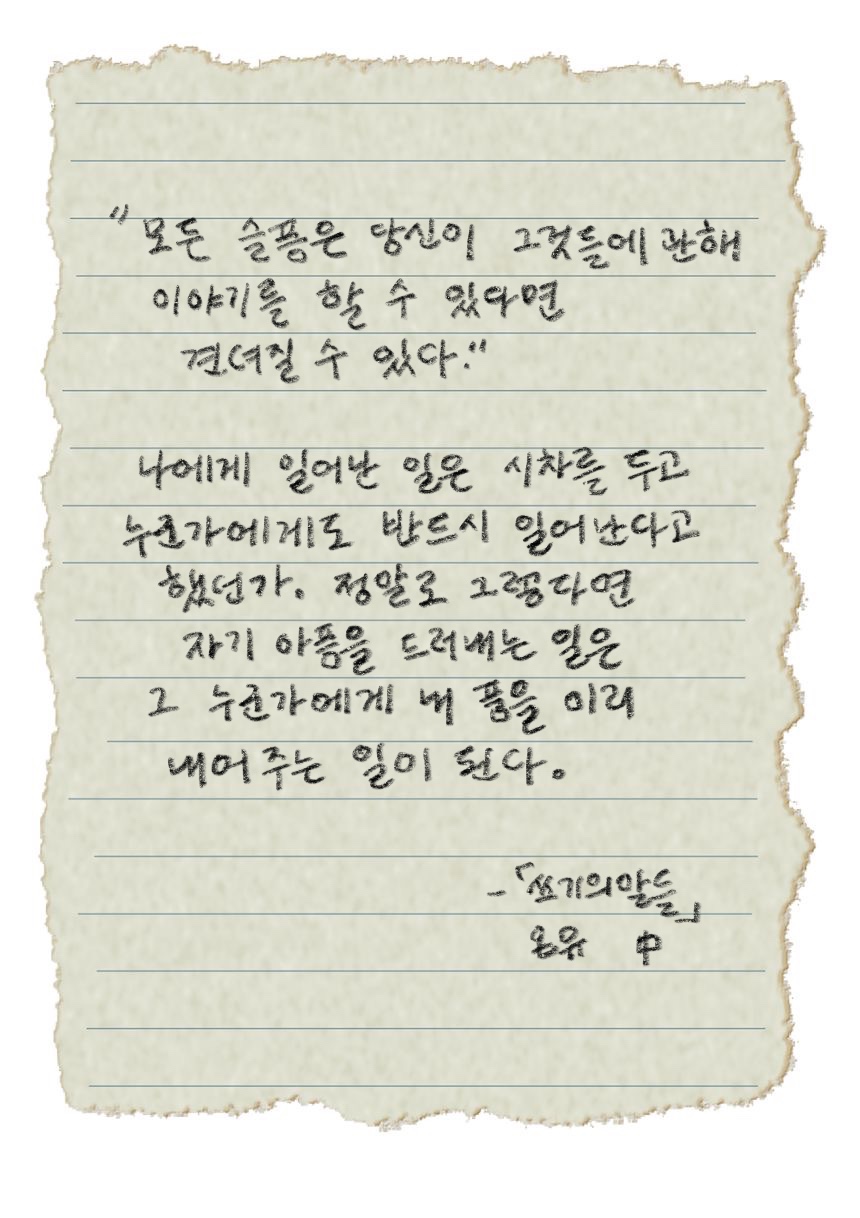 "모든 슬픔은 당신이 그것들에 관해
이야기를 할 수 있다면
견뎌질 수 있다."
나에게 일어난 일은 시차를 두고
누군가에게도 반드시 일어난다고
했던가. 정말로 그렇다면
자기 아픔을 드러내는 일은
그 누군가에게 내 품을 미리
내어주는 일이 된다.
-「쓰기의말들」
은유 中